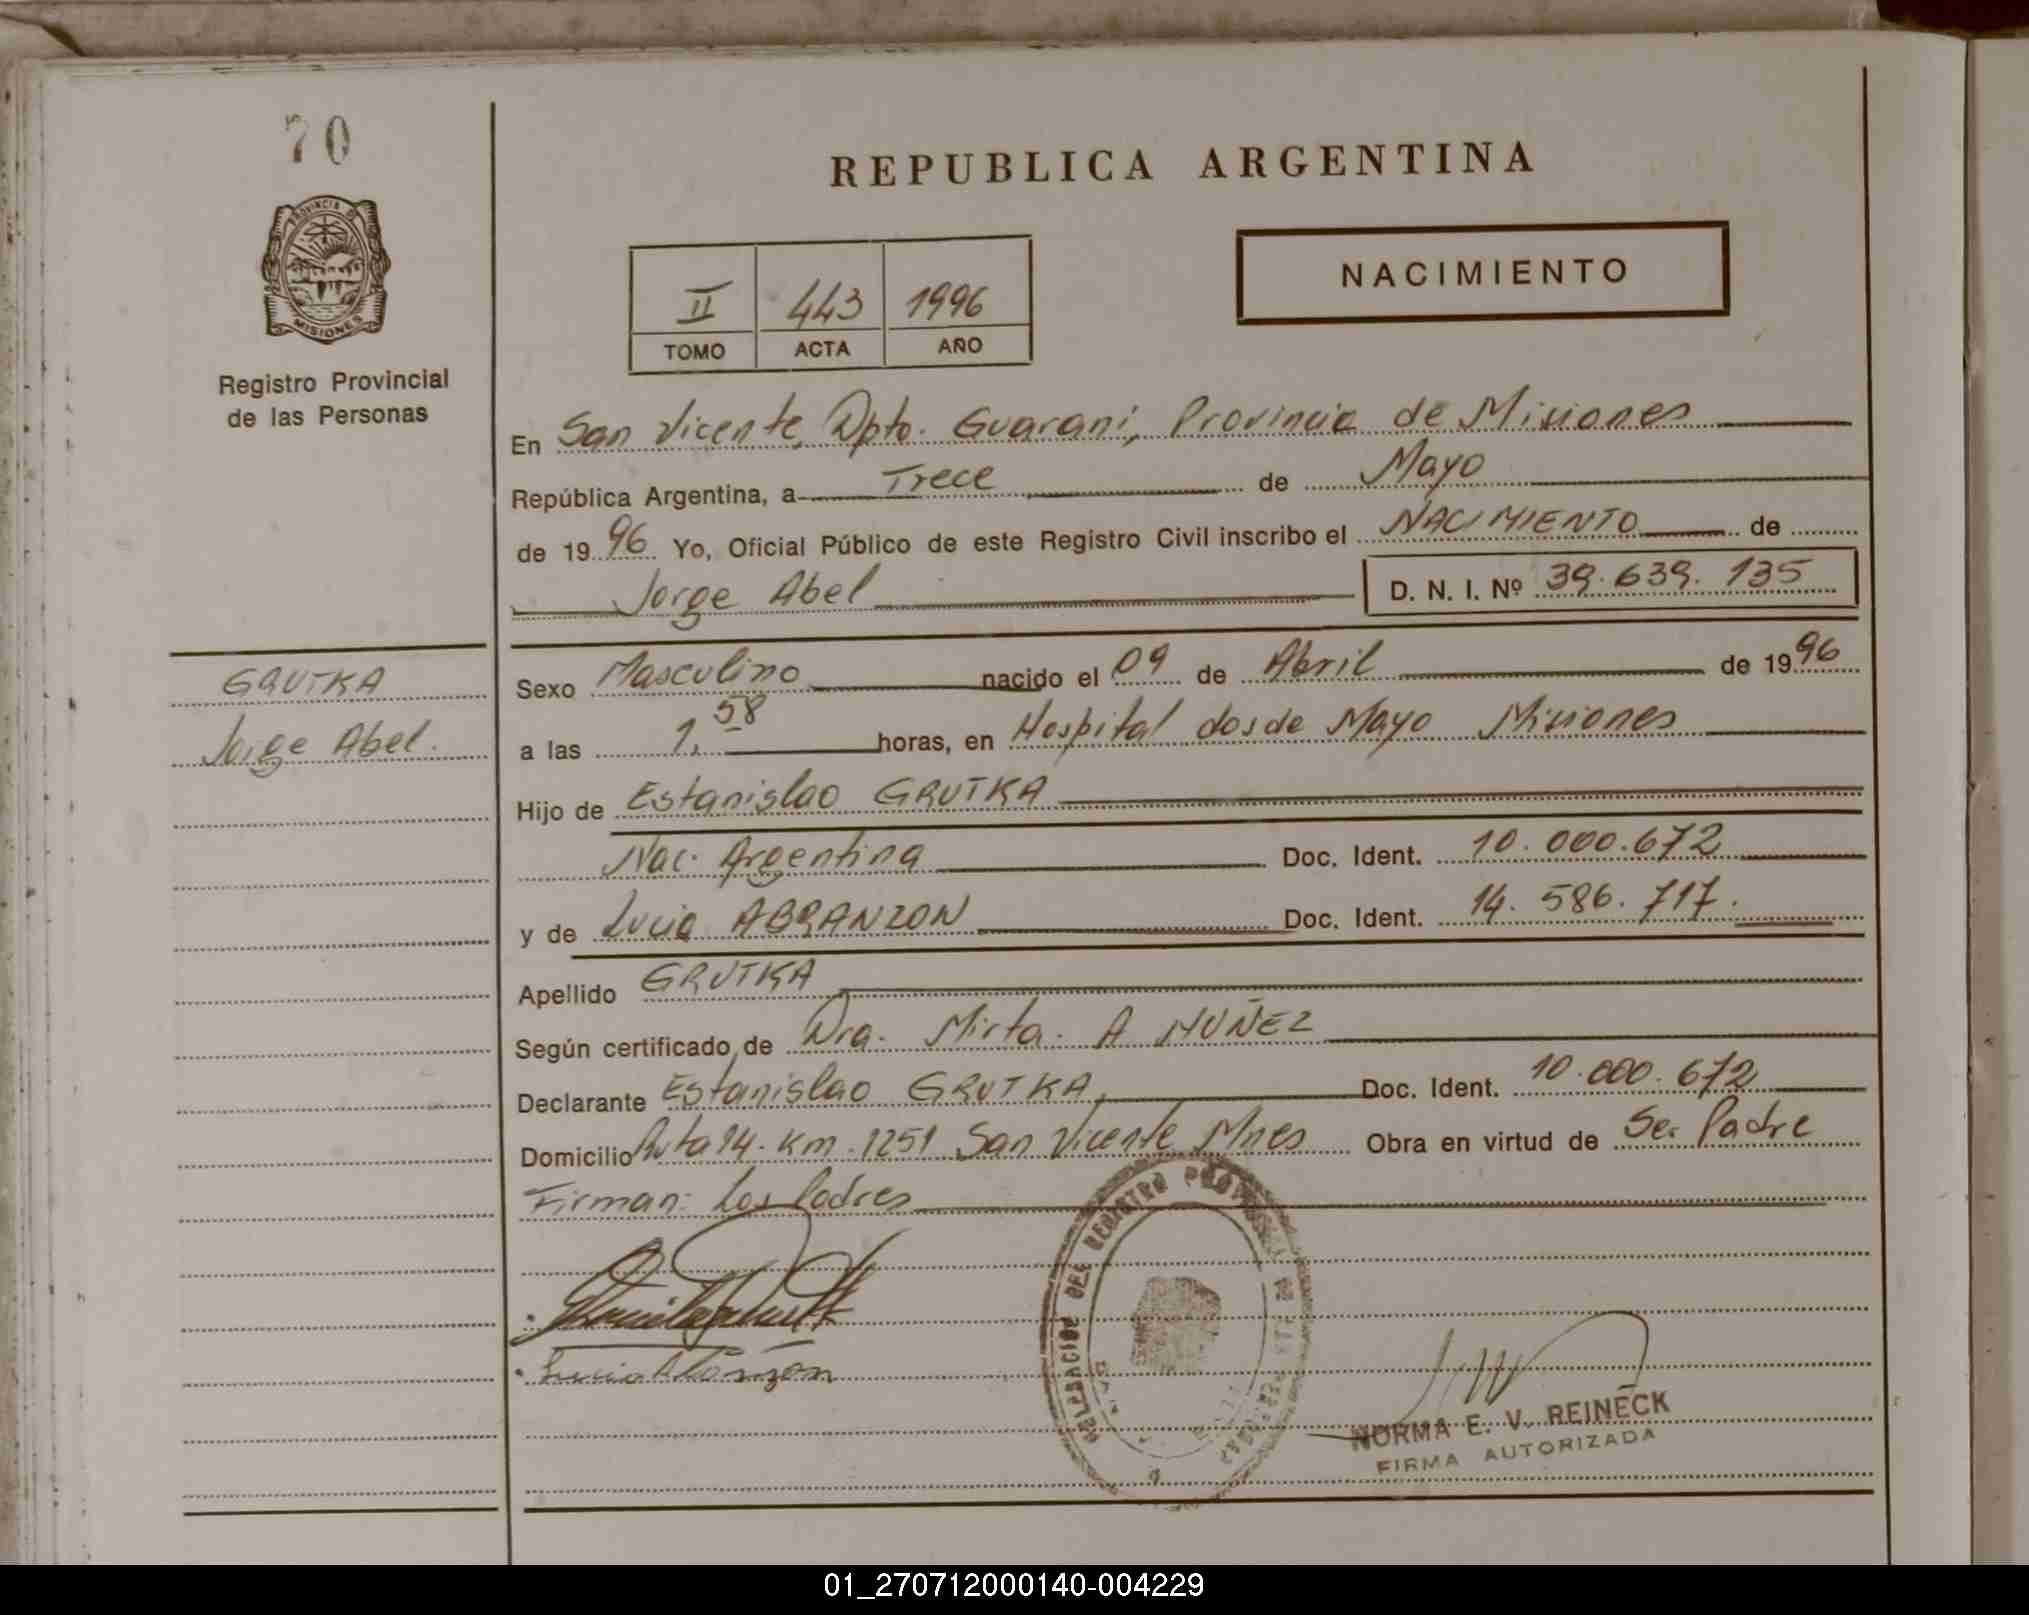 70
PROVINCIA DE
MISIONES
Registro Provincial
de las Personas
REPUBLICA ARGENTINA
NACIMIENTO
II 443 1996
TOMO ACTA AÑO
En San Vicente, Dpto. Guarani, Provincia de Misiones
República Argentina, a Trece de Mayo
de 19 96 Yo, Oficial Público de este Registro Civil inscribo el NACIMIENTO de
Jorge Abel D. N. I. Nº 39.639.135
GRUTKA
Jorge Abel.
Sexo Masculino nacido el 09 de Abril de 19 96
a las 1.58 horas, en Hospital dos de Mayo Misiones
Hijo de Estanislao GRUTKA
Nac. Argentina Doc. Ident. 10.000.672
y de Lucia ABRANZON Doc. Ident. 14.586.717.
Apellido GRUTKA
Según certificado de Dra. Mirta. A MUÑEZ
Declarante Estanislao GRUTKA, Doc. Ident. 10.000.672
Domicilio Ruta 14. Km. 1251 San Vicente Mnes Obra en virtud de Ser Padre
Firman: Los Padres
DELEGACION DEL REGISTRO
NORMA E. V. REINECK
FIRMA AUTORIZADA
01_270712000140-004229